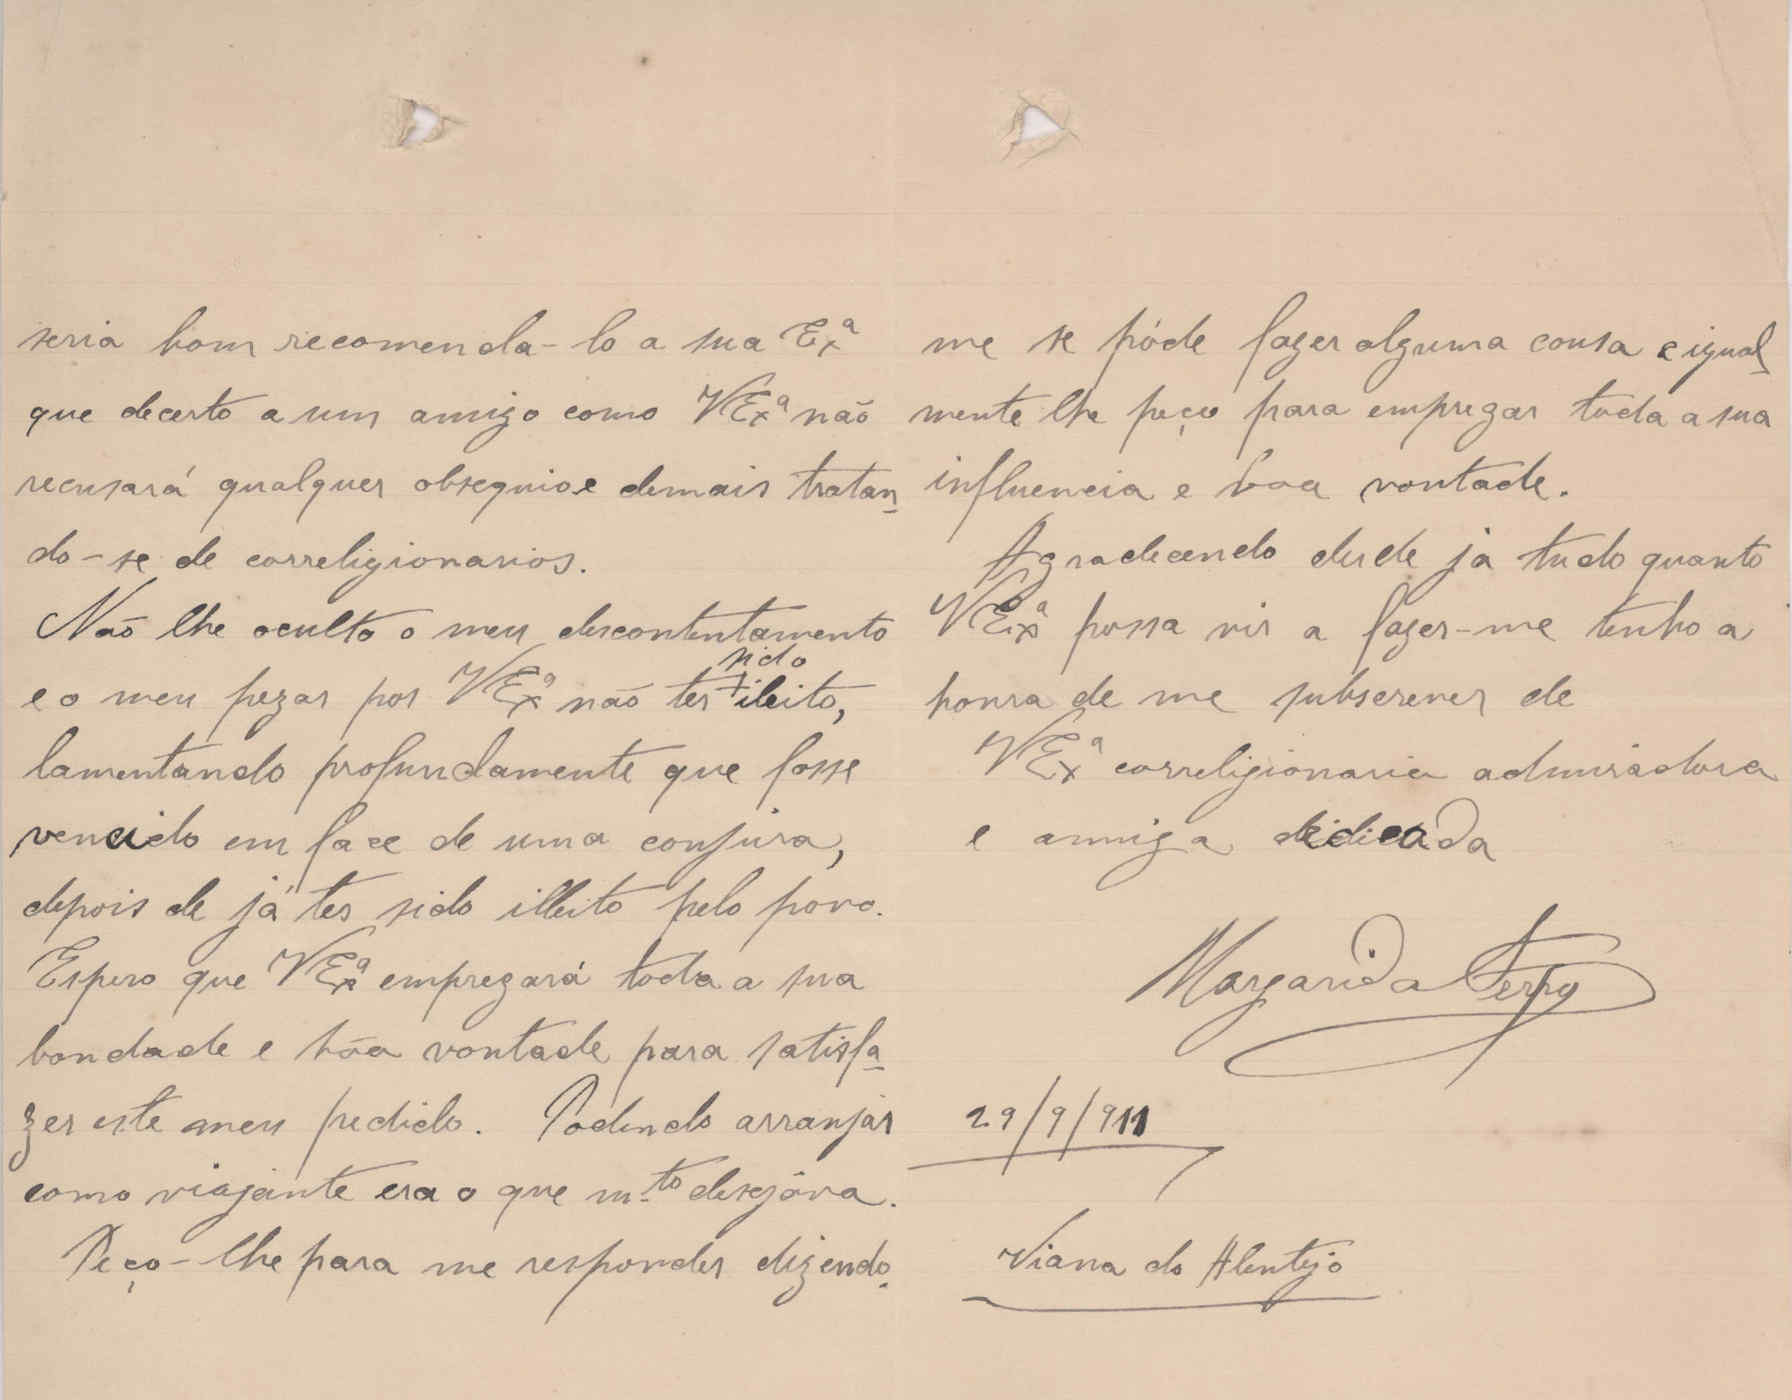 seria bom recomenda-lo a sua Exª
que decerto a um amigo como VExª não
recusará qualquer obsequio e demais tratan-
do-se de correligionarios.
Não lhe oculto o meu descontentamento
e o meu pezar por VExª não ter sido ileito,
lamentando profundamente que fosse
vencido em face de uma conjura,
depois de já ter sido illeito pelo povo.
Espero que VExª empregará toda a sua
bondade e bôa vontade para satisfa-
zer este meu pedido. Podendo arranjar
como viajante era o que m.to desejava.
Peço-lhe para me responder dizendo-
me se póde fazer alguma cousa e igual-
mente lhe peço para empregar toda a sua
influencia e boa vontade.
Agradecendo desde já tudo quanto
VExª possa vir a fazer-me tenho a
honra de me subscrever de
VExª correligionaria admiradora
e amiga dedicada
Margarida
29/9/911
Viana do Alentejo